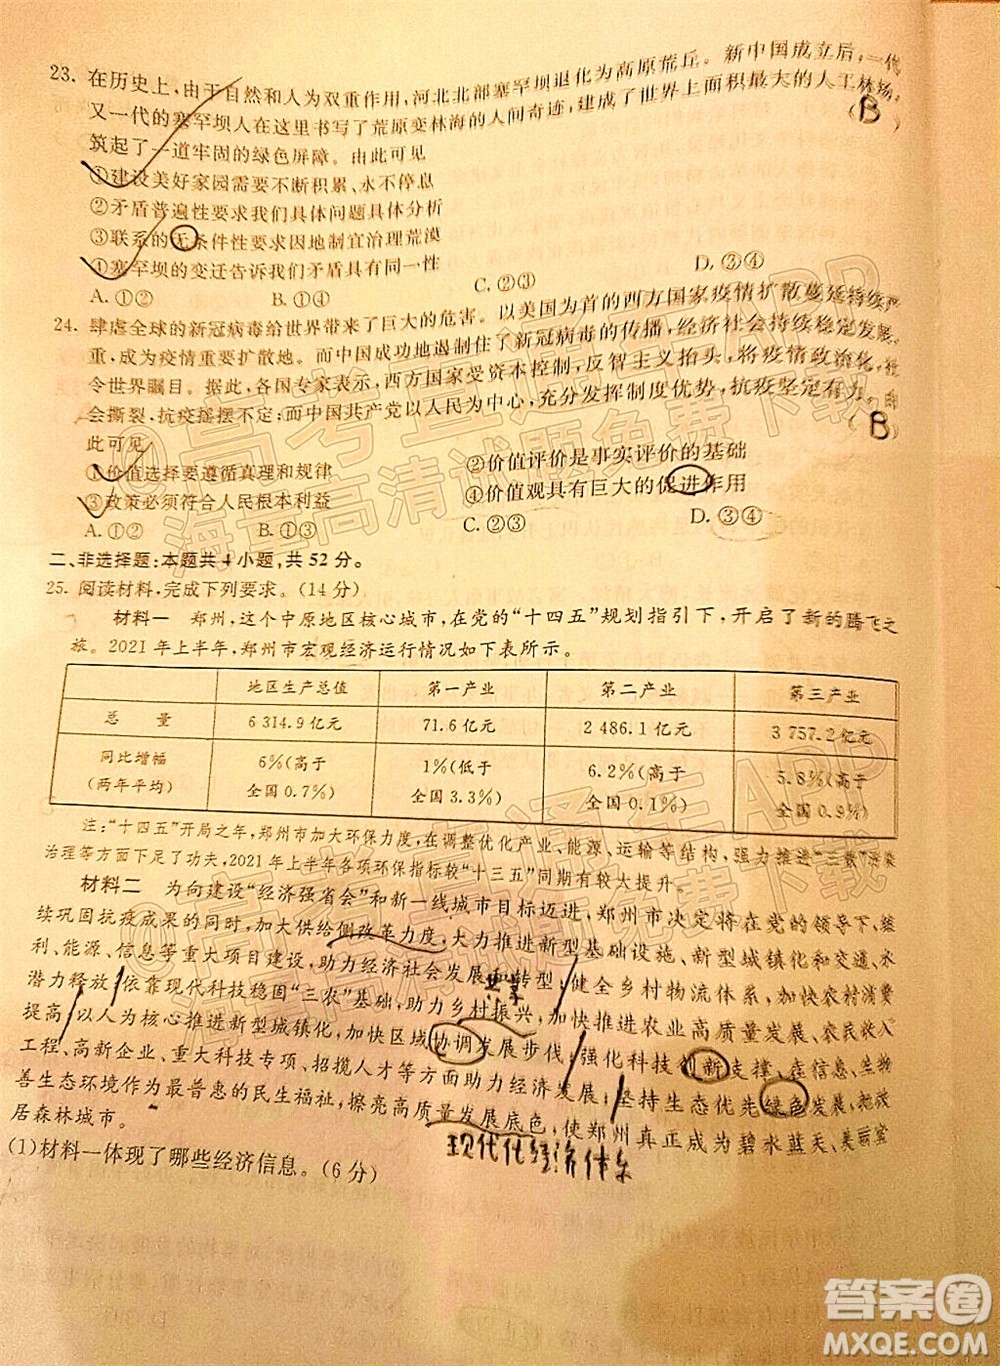 23. 在历史上，由于自然和人为双重作用，河北北部塞罕坝退化为高原荒丘。新中国成立后，一代
又一代的塞罕坝人在这里书写了荒原变林海的人间奇迹，建成了世界上面积最大的人工林场，
筑起了一道牢固的绿色屏障。由此可见 (B)
①建设美好家园需要不断积累、永不停息
②矛盾普遍性要求我们具体问题具体分析
③联系的无条件性要求因地制宜治理荒漠
④塞罕坝的变迁告诉我们矛盾具有同一性
A. ①② B. ①④ C. ②③ D. ③④
24. 肆虐全球的新冠病毒给世界带来了巨大的危害。以美国为首的西方国家疫情扩散蔓延持续严
重，成为疫情重要扩散地。而中国成功地遏制住了新冠病毒的传播，经济社会持续稳定发展，
令世界瞩目。据此，各国专家表示，西方国家受资本控制，反智主义抬头，将疫情政治化，社
会撕裂，抗疫摇摆不定；而中国共产党以人民为中心，充分发挥制度优势，抗疫坚定有力。由
此可见 (B)
①价值选择要遵循真理和规律 ②价值评价是事实评价的基础
③政策必须符合人民根本利益 ④价值观具有巨大的促进作用
A. ①② B. ①③ C. ②③ D. ③④
二、非选择题：本题共 4 小题，共 52 分。
25. 阅读材料，完成下列要求。(14 分)
材料一 郑州，这个中原地区核心城市，在党的“十四五”规划指引下，开启了新的腾飞之
旅。2021 年上半年，郑州市宏观经济运行情况如下表所示。
地区生产总值 第一产业 第二产业 第三产业
总 量 6 314.9 亿元 71.6 亿元 2 486.1 亿元 3 757.2 亿元
同比增幅 6%(高于 1%(低于 6.2%(高于 5.8%(高于
(两年平均) 全国 0.7%) 全国 3.3%) 全国 0.1%) 全国 0.9%)
注：“十四五”开局之年，郑州市加大环保力度，在调整优化产业、能源、运输等结构，推进“三散”污染
治理等方面下足了功夫，2021 年上半年各项环保指标较“十三五”同期有较大提升。
材料二 为向建设“经济强省会”和新一线城市目标迈进，郑州市决定将在党的领导下，继
续巩固抗疫成果的同时，加大供给侧改革力度，大力推进新型基础设施、新型城镇化和交通、水
利、能源、信息等重大项目建设，助力经济社会发展和转型；健全乡村物流体系，农村消费
潜力释放；依靠现代科技稳固“三农”基础，助力乡村振兴，加快推进农业高质量发展、农民收入
共享
提高；以人为核心推进新型城镇化，加快区域协调发展步伐；强化科技创新支撑，在信息、生物
工程、高新企业、重大科技专项、招揽人才等方面助力经济发展；坚持生态优先绿色发展，把改
善生态环境作为最普惠的民生福祉，擦亮高质量发展底色，使郑州真正成为碧水蓝天、美丽宜
居森林城市。
现代化经济体系
(1)材料一体现了哪些经济信息。(6 分)
@高考直通车APP
海量高清试题免费下载
@高考直通车APP
海量高清试题免费下载
答案圈
MXQE.COM